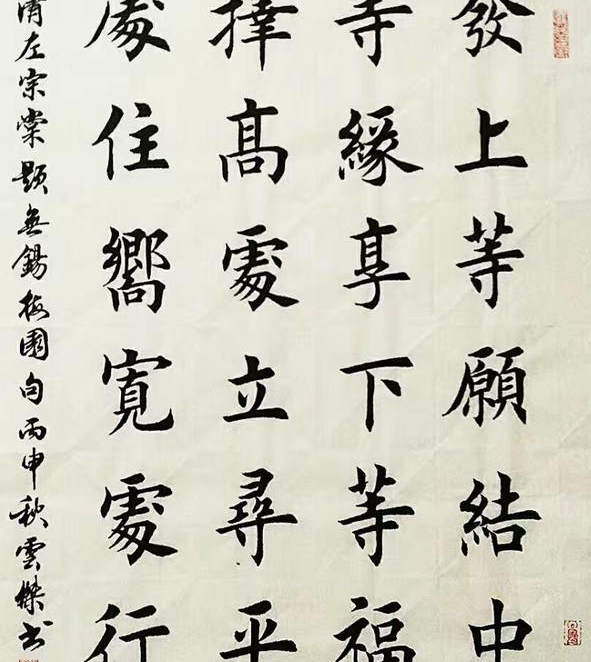 發上等願結中
等緣享下等福
擇髙處立尋平
處住嚮寬處行
清左宗棠題無錫梅園句丙申秋雲傑书